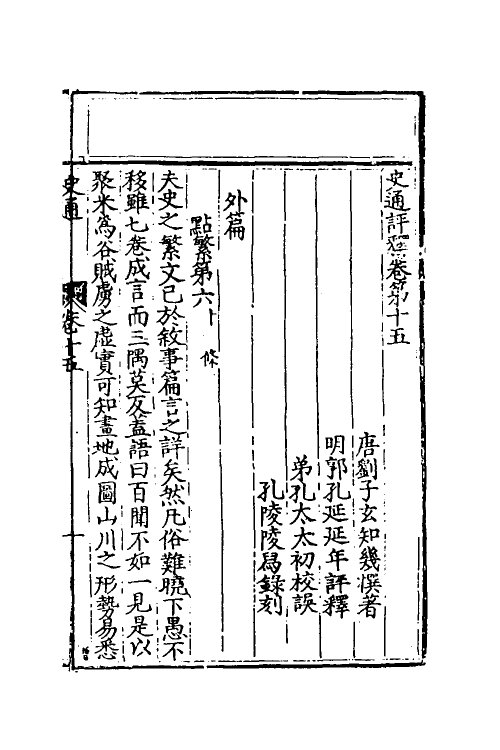 史通評釋卷第十五
唐劉子玄知幾撰著
明郭孔延延年評釋
弟孔太太初校誤
孔陵陵舄錄刻
外篇
點繁第六十條
夫史之繁文已於敘事篇言之詳矣然凡俗難曉下愚不
移雖七卷成言而三隅莫反蓋語曰百聞不如一見是以
聚米為谷賊虜之虛實可知畫地成圖山川之形勢易悉
史通
卷十五
十